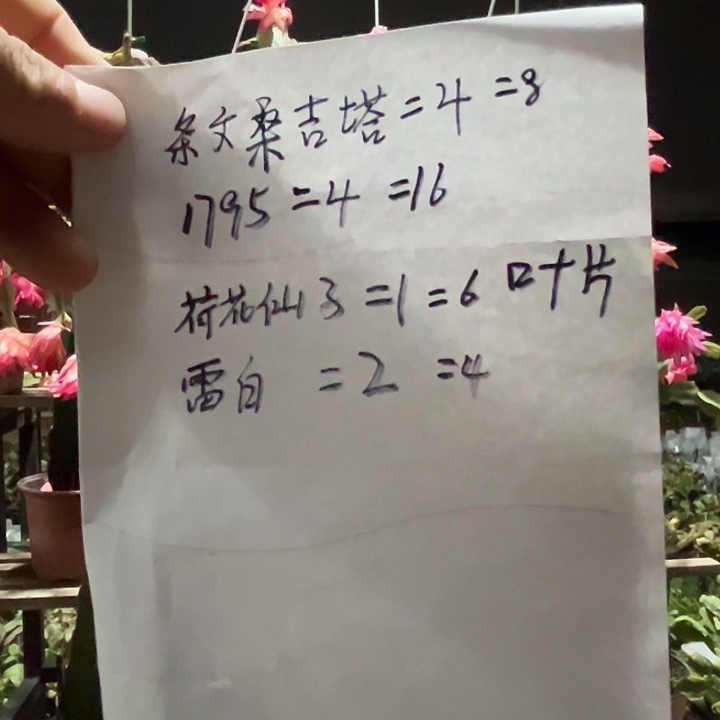 条文桑吉塔=4 =8
1795 =4 =16
荷花仙子 =1 =6 叶片
雷白 =2 =4